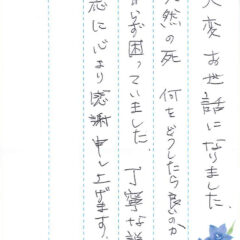 大変お世話になりました.
突然の死 何をどうしたら良いのか
らず困っていました 丁寧な説
応に心より感謝申し上げます.